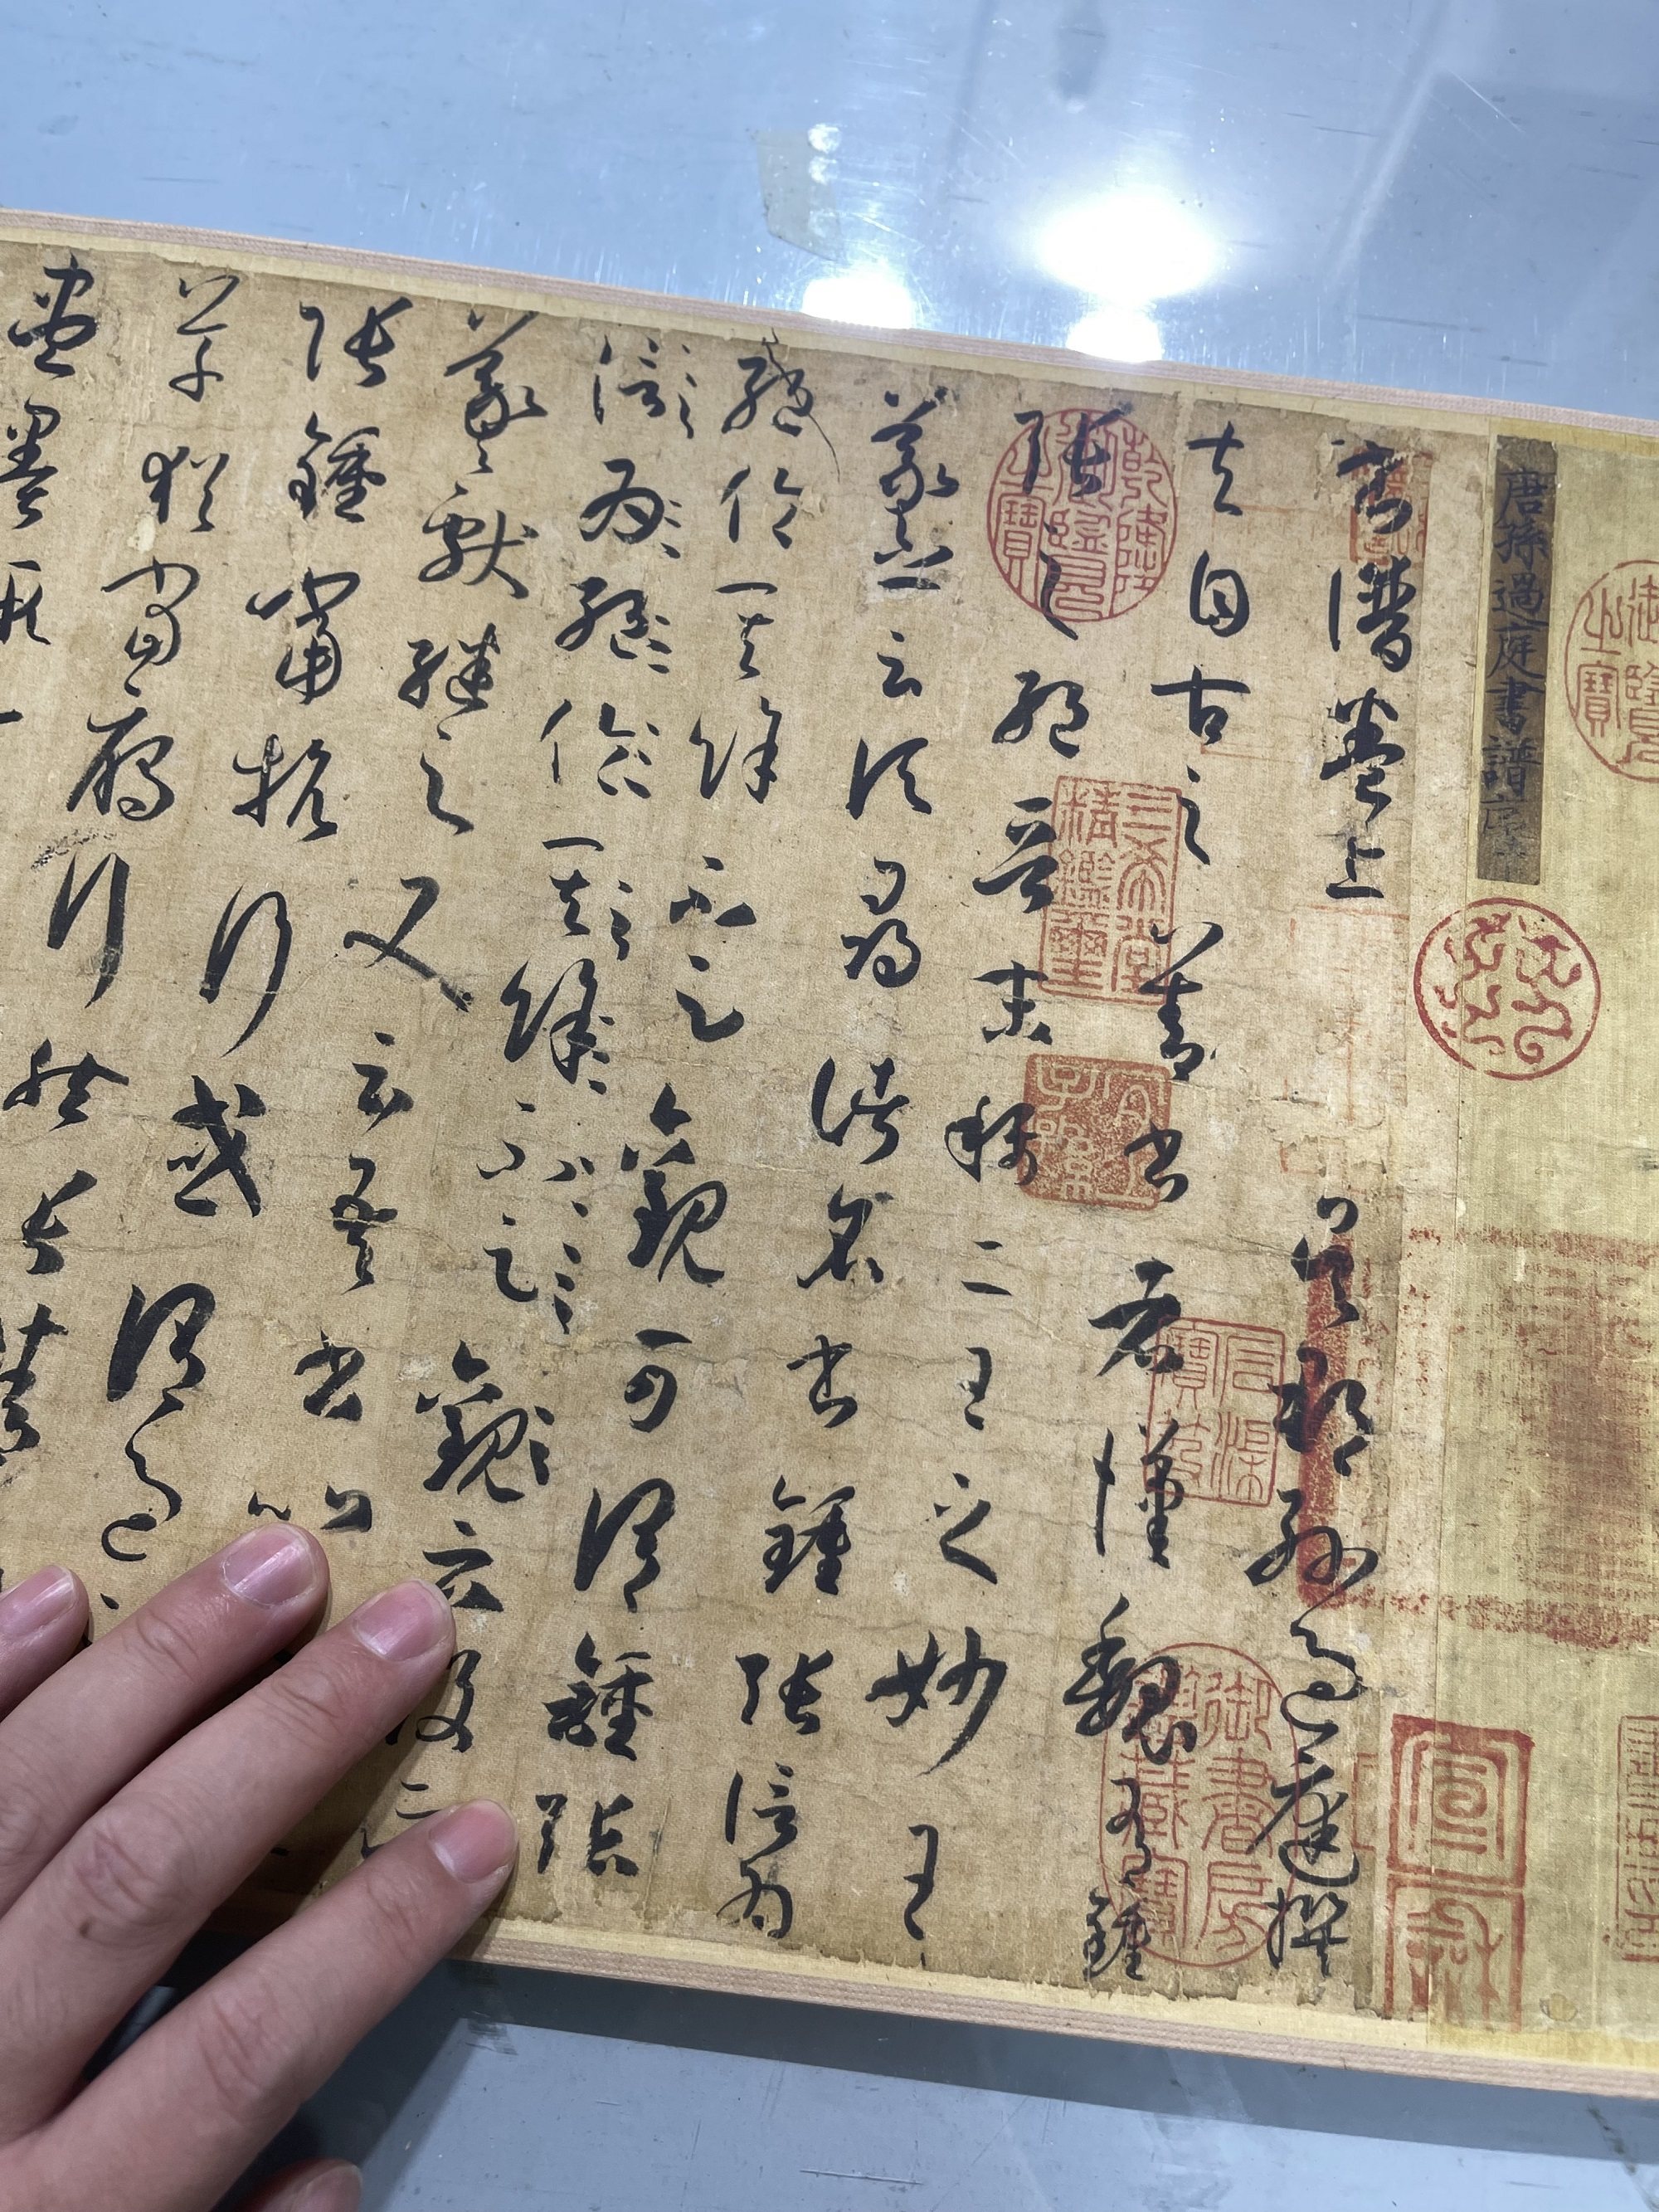 御覽之寶
唐孫過庭書譜序
宣和
書譜卷上 吳郡孫過庭撰
夫自古之善書者漢魏有鍾
張之絕晉末稱二王之妙王
羲之云頃尋諸名書鍾張信為
絕倫其餘不足觀可謂鍾張
信為絕倫其餘不足觀云没
羲獻繼之又云吾書比
張鍾當抗行或謂過
草猶當鴈行然張精
盡墨假
乾隆御覽之寶
三希堂精鑑璽
宜子孫
石渠寶笈
御書房鑑藏寶